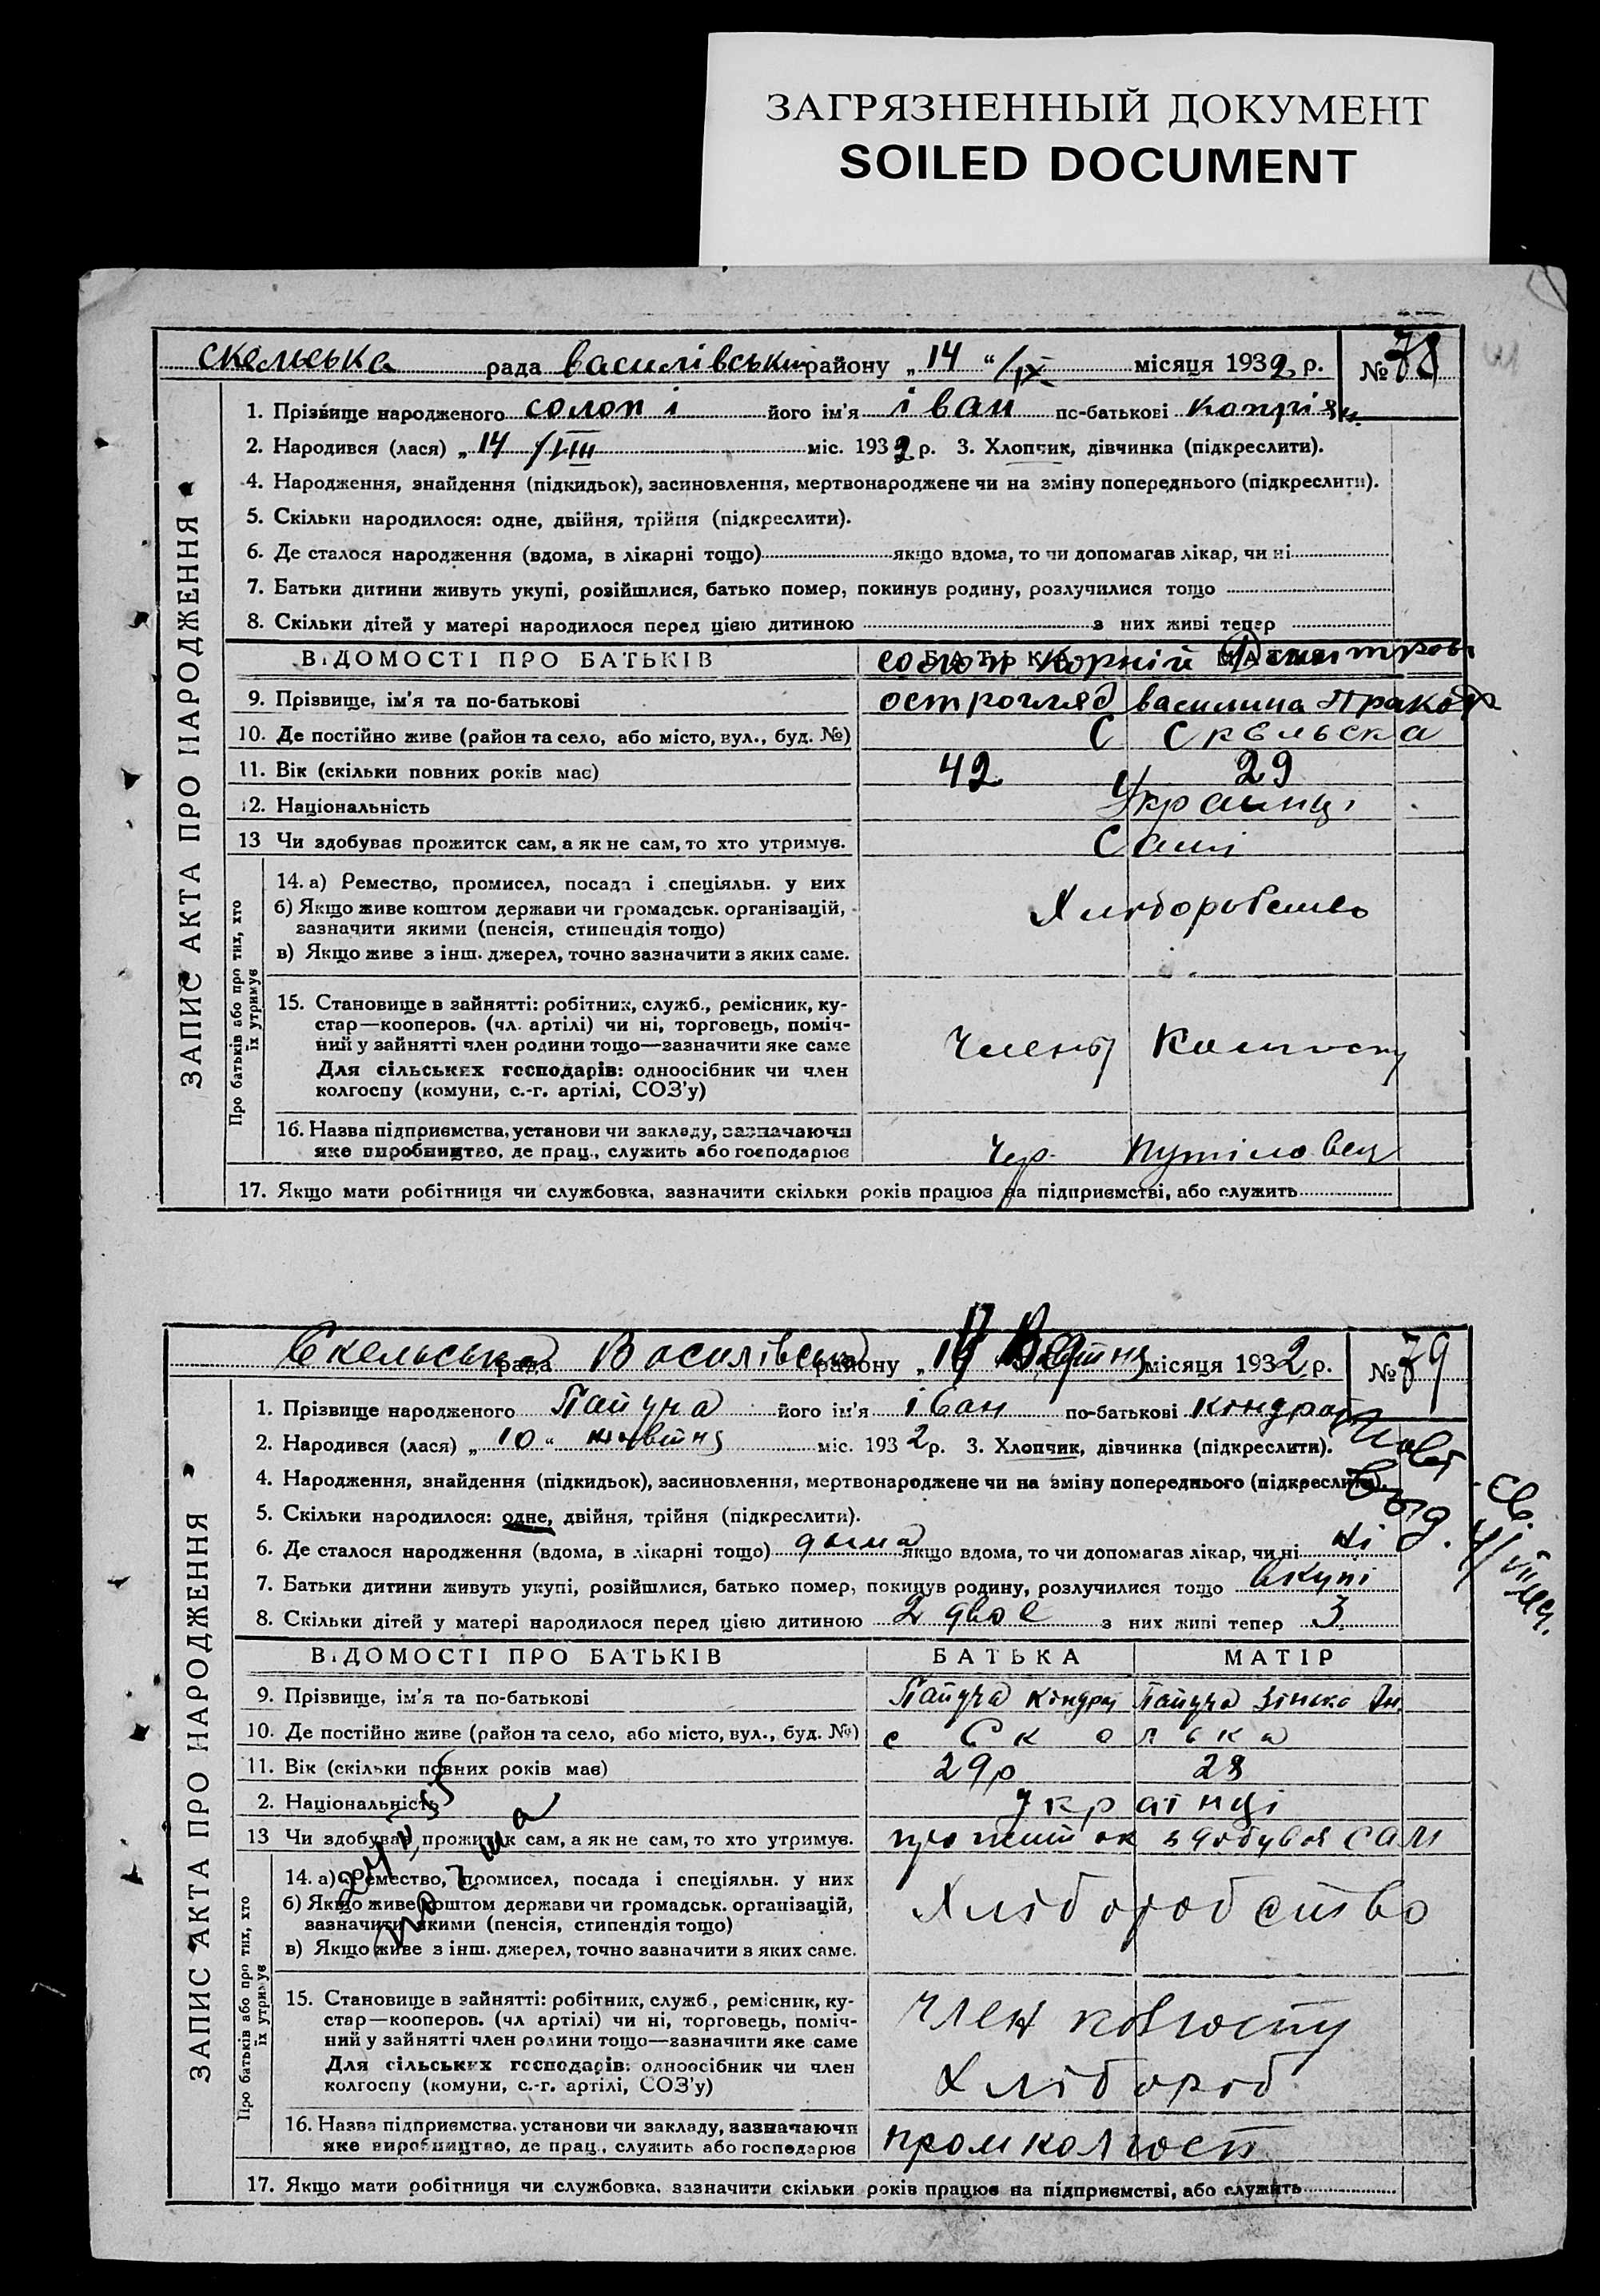 ЗАГРЯЗНЕННЫЙ ДОКУМЕНТ
SOILED DOCUMENT
скельська рада василівськи району „ 14 “ /IX місяця 1932 р. № 78
ЗАПИС АКТА ПРО НАРОДЖЕННЯ
1. Прізвище народженого солоп і його ім'я іван по-батькові
2. Народився (лася) „ 14 /VIII міс. 1932 р. 3. Хлопчик, дівчинка (підкреслити).
4. Народження, знайдення (підкидьок), засиновлення, мертвонароджене чи на зміну попереднього (підкреслити).
5. Скільки народилося: одне, двійня, трійня (підкреслити).
6. Де сталося народження (вдома, в лікарні тощо) якщо вдома, то чи допомагав лікар, чи ні
7. Батьки дитини живуть укупі, розійшлися, батько помер, покинув родину, розлучилися тощо
8. Скільки дітей у матері народилося перед цією дитиною з них живі тепер
ВІДОМОСТІ ПРО БАТЬКІВ БАТЬКА МАТІР
солоп Корній
9. Прізвище, ім'я та по-батькові острогляд василина
10. Де постійно живе (район та село, або місто, вул., буд. №) С Скельска
11. Вік (скільки повних років має) 42 29
12. Національність Украинці
13 Чи здобував прожиток сам, а як не сам, то хто утримує. Самі
Про батьків або про тих, хто їх утримує
14. а) Ремество, промисел, посада і спеціяльн. у них
б) Якщо живе коштом держави чи громадськ. організацій,
зазначити якими (пенсія, стипендія тощо)
в) Якщо живе з інш. джерел, точно зазначити з яких саме.
Хліборобство
15. Становище в зайнятті: робітник, служб., ремісник, ку-
стар—кооперов. (чл. артілі) чи ні, торговець, поміч-
ний у зайнятті член родини тощо—зазначити яке саме
Для сільських господарів: одноосібник чи член
колгоспу (комуни, с.-г. артілі, СОЗ'у)
Члены Колгоспу
16. Назва підприємства, установи чи закладу, зазначаючи
яке виробництво, де прац., служить або господарює
Чер. Путіловец
17. Якщо мати робітниця чи службовка, зазначити скільки років працює на підприємстві, або служить
Скельська рада Василівська району „ місяця 1932 р. № 79
ЗАПИС АКТА ПРО НАРОДЖЕННЯ
1. Прізвище народженого його ім'я іван по-батькові Кондрат
2. Народився (лася) „ 10 “ квітня міс. 1932 р. 3. Хлопчик, дівчинка (підкреслити).
4. Народження, знайдення (підкидьок), засиновлення, мертвонароджене чи на зміну попереднього (підкреслити).
5. Скільки народилося: одне, двійня, трійня (підкреслити).
6. Де сталося народження (вдома, в лікарні тощо) дома якщо вдома, то чи допомагав лікар, чи ні ні
7. Батьки дитини живуть укупі, розійшлися, батько помер, покинув родину, розлучилися тощо вкупі
8. Скільки дітей у матері народилося перед цією дитиною 2 двое з них живі тепер 3
ВІДОМОСТІ ПРО БАТЬКІВ БАТЬКА МАТІР
9. Прізвище, ім'я та по-батькові
10. Де постійно живе (район та село, або місто, вул., буд. №) с Сколька
11. Вік (скільки повних років має) 29р 28
2. Національність українці
13 Чи здобував прожиток сам, а як не сам, то хто утримує. прожиток здобувая сам
Про батьків або про тих, хто їх утримує
14. а) Ремество, промисел, посада і спеціяльн. у них
б) Якщо живе коштом держави чи громадськ. організацій,
зазначити якими (пенсія, стипендія тощо)
в) Якщо живе з інш. джерел, точно зазначити з яких саме.
Хліборобство
15. Становище в зайнятті: робітник, служб., ремісник, ку-
стар—кооперов. (чл артілі) чи ні, торговець, поміч-
ний у зайнятті член родини тощо—зазначити яке саме
Для сільських господарів: одноосібник чи член
колгоспу (комуни, с.-г. артілі, СОЗ'у)
член колгоспу
Хлібороб
16. Назва підприємства, установи чи закладу, зазначаючи
яке виробництво, де прац., служить або господарює
промколгосп
17. Якщо мати робітниця чи службовка, зазначити скільки років працює на підприємстві, або служить